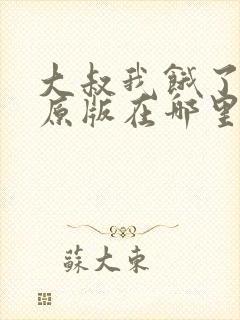 大叔我餓了
原版在哪里
蘇大東